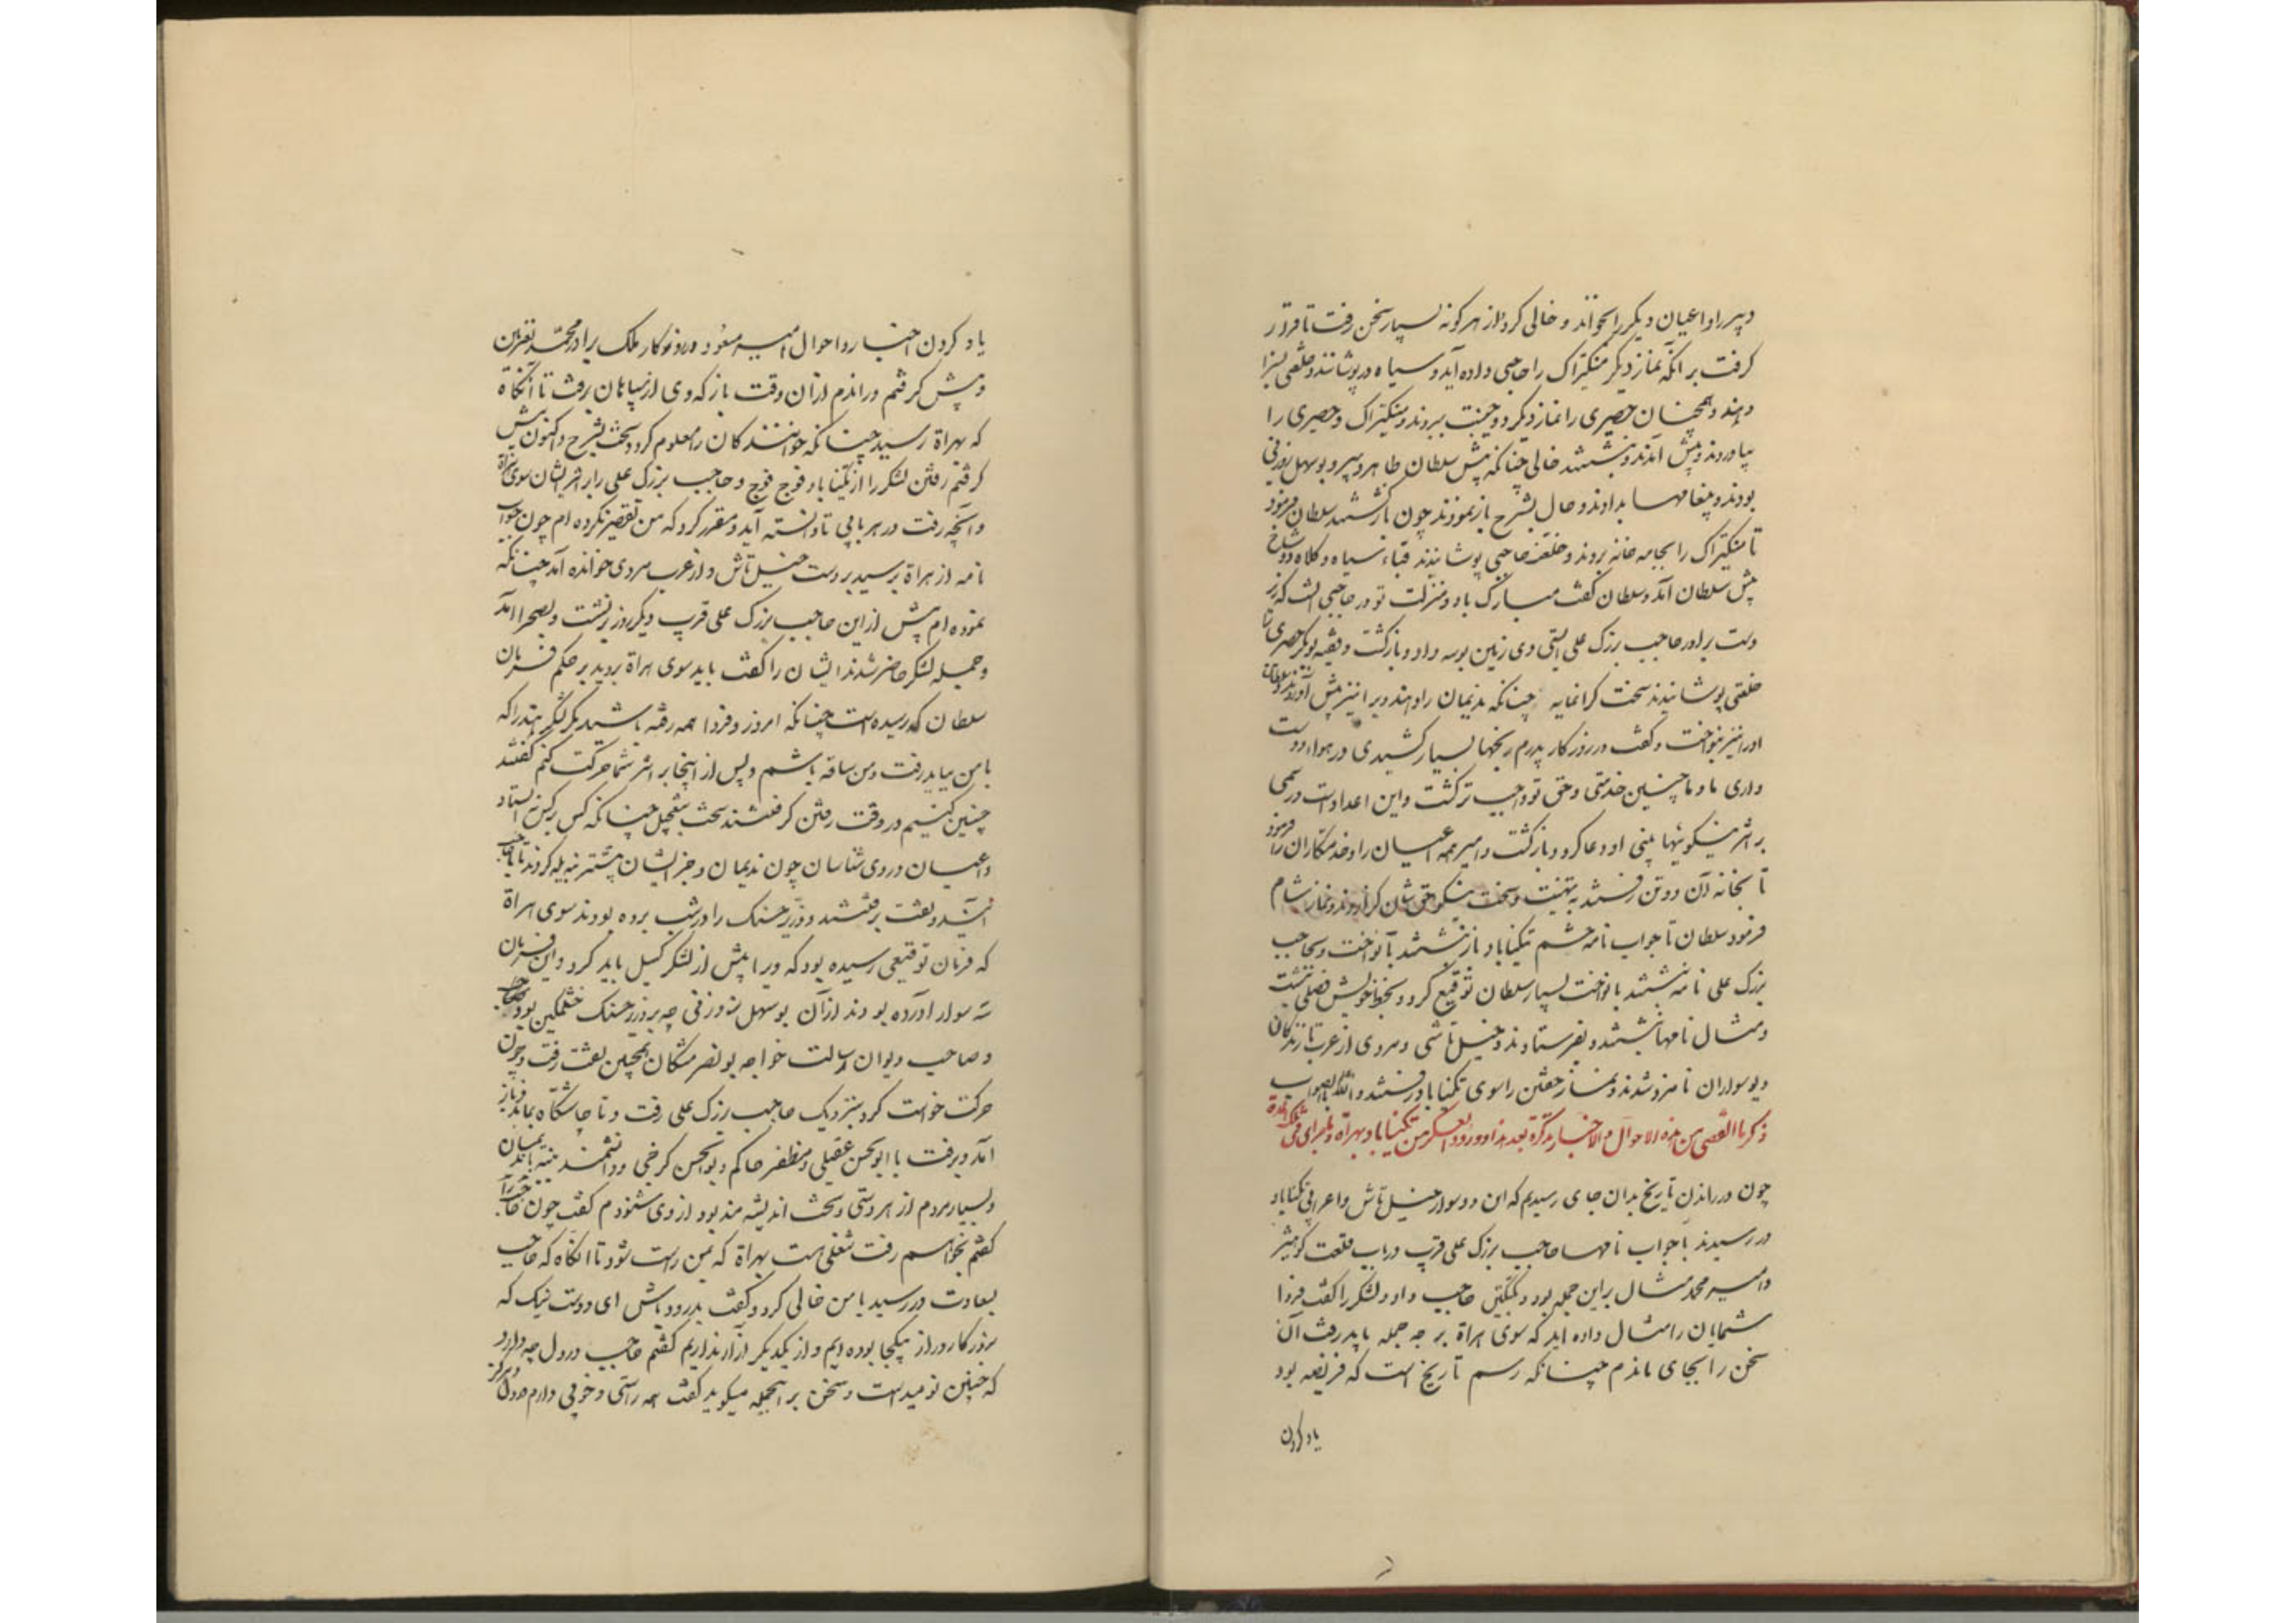 دبیر را و اعیان دیگر را بخواند و خالی کرد و از هر گونه بسیار سخن رفت تا قرار
گرفت بر آنکه نماز دیگر منکیتراک را حاجبی داده آید و سیاه در پوشانند و خلعتی بسزا
دهند و همچنان حصیری را نماز دیگر دو جنیبت ببرند و منکیتراک و حصیری را
بیاوردند و پیش آمدند و بنشستند خالی چنانکه پیش سلطان طاهر دبیر و بوسهل زوزنی
بودند و پیغامها بدادند و حال بشرح باز نمودند چون بازگشتند سلطان فرمود
تا منکیتراک را بجامه خانه بردند و خلعت حاجبی پوشانیدند قباء سیاه و کلاه دو شاخ
پیش سلطان آمد و سلطان گفت مبارک باد و منزلت تو در حاجبی آنست که زیر
دست برادر حاجب بزرک علی ایستی وی زمین بوسه داد و بازگشت و فقیه بوبکر حصیری را
خلعتی پوشانیدند سخت گرانمایه چنانکه ندیمان را دهند ویرا نیز پیش آوردند و سلطان
او را نیز بنواخت و گفت در روزکار پدرم رنجها بسیار کشیدی در هواء دوست
داری ما و ما چنین خدمتی و حق تو واجب تر گشت و این اعداد است درسمی
بر اثر نیکوییها بینی او دعا کرد و بازگشت و امیر همه اعیان را و خدمتکاران را فرمود
تا بخانه آن دو تن رفتند به تهنیت و سخت نیکو حق شان گزاردند و نماز شام
فرمود سلطان تا جواب نامه حشم تکیناباد باز نبشتند با نواخت و بحاجب
بزرک علی نامه نبشتند با نواخت بسیار سلطان توقیع کرد و بخط خویش فصلی نبشت
و مثال نامها نبشتند و بفرستادند و خیل تاشی و مردی از عرب تازندگان
دیو سواران نامزد شدند و نماز خفتن را سوی تکیناباد رفتند والله اعلم بالصواب
ذکر ما انقضی من هذه الاحوال و الاخبار تذکرة بعد هذا و ورود العسکر من تکیناباد بهراة و ما جرای فی تلک المدة
چون در راندن تاریخ بدان جای رسیدیم که این دو سوار خیل تاش و اعرابی تکیناباد
در رسیدند با جواب نامها حاجب بزرک علی قریب در باب قلعت کوهتیز
و امیر محمد مثال بر این جمله بود و بکتکین حاجب داد و لشکر را گفت فردا
شمایان را مثال داده آید که سوی هراة بر چه جمله باید رفت آن
سخن را بجای ماندم چنانکه رسم تاریخ است که فریضه بود
یاد کردن
یاد کردن اخبار و احوال امیر مسعود در روزکار ملک برادر محمد بغزنین
و پیش گرفتم و راندم از آن وقت باز که وی از سپاهان برفت تا آنگاه
که بهراة رسید چنانکه خوانندگان را معلوم گردد سخت بشرح و اکنون پیش
گرفتم رفتن لشکر را از تکیناباد فوج فوج و حاجب بزرک علی را بر اثر ایشان سوی هراة
و آنچه رفت در هر بابی تا دانسته آید و مقرر گردد که من تقصیر نکرده ام چون جواب
نامه از هراة برسید بر دست خیل تاش و از عرب مردی خوانده آمد چنانکه
نموده ام پیش از این حاجب بزرک علی قریب دیگر روز برنشست و بصحرا آمد
و جمله لشکر حاضر شدند ایشان را گفت باید سوی هراة بروید بر حکم فرمان
سلطان که رسیده است چنانکه امروز و فردا همه رفته باشید مگر لشگر هند را که
با من بباید رفت و من ساقه باشم و پس از اینجا بر اثر شما حرکت کنم گفتند
چنین کنیم در وقت رفتن گرفتند سخت بتعجیل چنانکه کس بر کس نه ایستاد
و اعیان و روی شناسان چون ندیمان و جز ایشان بیشتر بنه یله کردند تا با حاجب
آید و بتفت برفتند و وزیر حسنک را در شب برده بودند سوی هراة
که فرمان توقیعی رسیده بود که ویرا پیش از لشکر گسیل باید کرد و این فرمان
سه سوار آورده بودند از آن بوسهل زوزنی چه بر وزیر حسنک خشمگین بود و صاحب
و صاحب دیوان رسالت خواجه بونصر مشکان همچنین بتفت رفت و چون
حرکت خواست کرد بنزدیک حاجب بزرک علی رفت و تا چاشتگاه بماند و باز
آمد و برفت با ابوالحسن عقیلی و مظفر حاکم و بوالحسن کرخی و دانشمند نبیه با ندیمان
و بسیار مردم از هر دستی و سخت اندیشه مند بود از وی شنودم گفت چون حاجب را
گفتم بخواهم رفت شغلی هست بهراة که بمن راست شود تا آنگاه که حاجب
بسعادت در رسید با من خالی کرد و گفت بدرود باش ای دوست نیک که
بروزکار دراز بیکجا بوده ایم و از یکدیکر آزار نداریم گفتم حاجب در دل چه دارد
که چنین نومیدست و سخن بر اینجمله میکوید گفت همه راستی و خوبی دارم در دل و هرگز